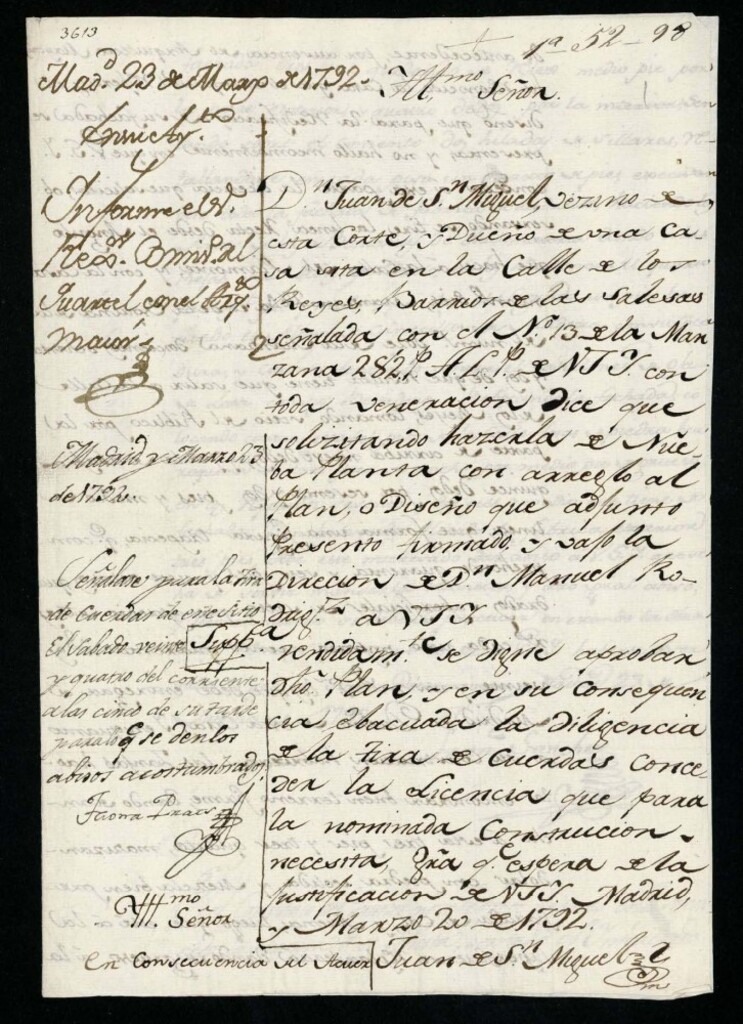 3613
1ª 52-98
Madᵈ 23 de Marzo de 1792.
En Ayᵗᵒ
Informe el Sʳ
Regᵒʳ Comisᵒ al
Quartel con el Arqᵗᵒ
maior
Madrid y Marzo 23
de 1792.
Señalase para la tira
de Cuerdas de este sitio
el Sabado veinte
y quatro del corriente
a las cinco de su tarde
para lo qᵉ se den los
abisos acostumbrados.
Illᵐᵒ Señor.
Dⁿ Juan de Sⁿ Miguel, vezino de
esta Corte, y Dueño de una Ca-
sa sita en la Calle de los
Reyes, Barrio de las Salesas
señalada con el Nº 13 de la Man-
zana 282, A L P. de V.S.Y. con
toda veneracion dice que
solizitando hazerla de Nue-
ba Planta con arreglo al
Plan, o Diseño que adjunto
presento firmado, y vajo la
Direcion de Dⁿ Manuel Ro-
drigᶻ a V.S.Y.
Suppᶜᵃ rendidamᵗᵉ se digne aprobar
dho. Plan, y en su Consequen-
cia ebacuada la diligencia
de la tira de Cuerdas conce-
der la Licencia que para
la nominada Construcion
necesita, gra qᵉ espera de la
justificacion de V.S.Y. Madrid,
y Marzo 20 de 1792.
Juan de Sⁿ Miguel
Illᵐᵒ Señor
En Consecuencia del Acuer